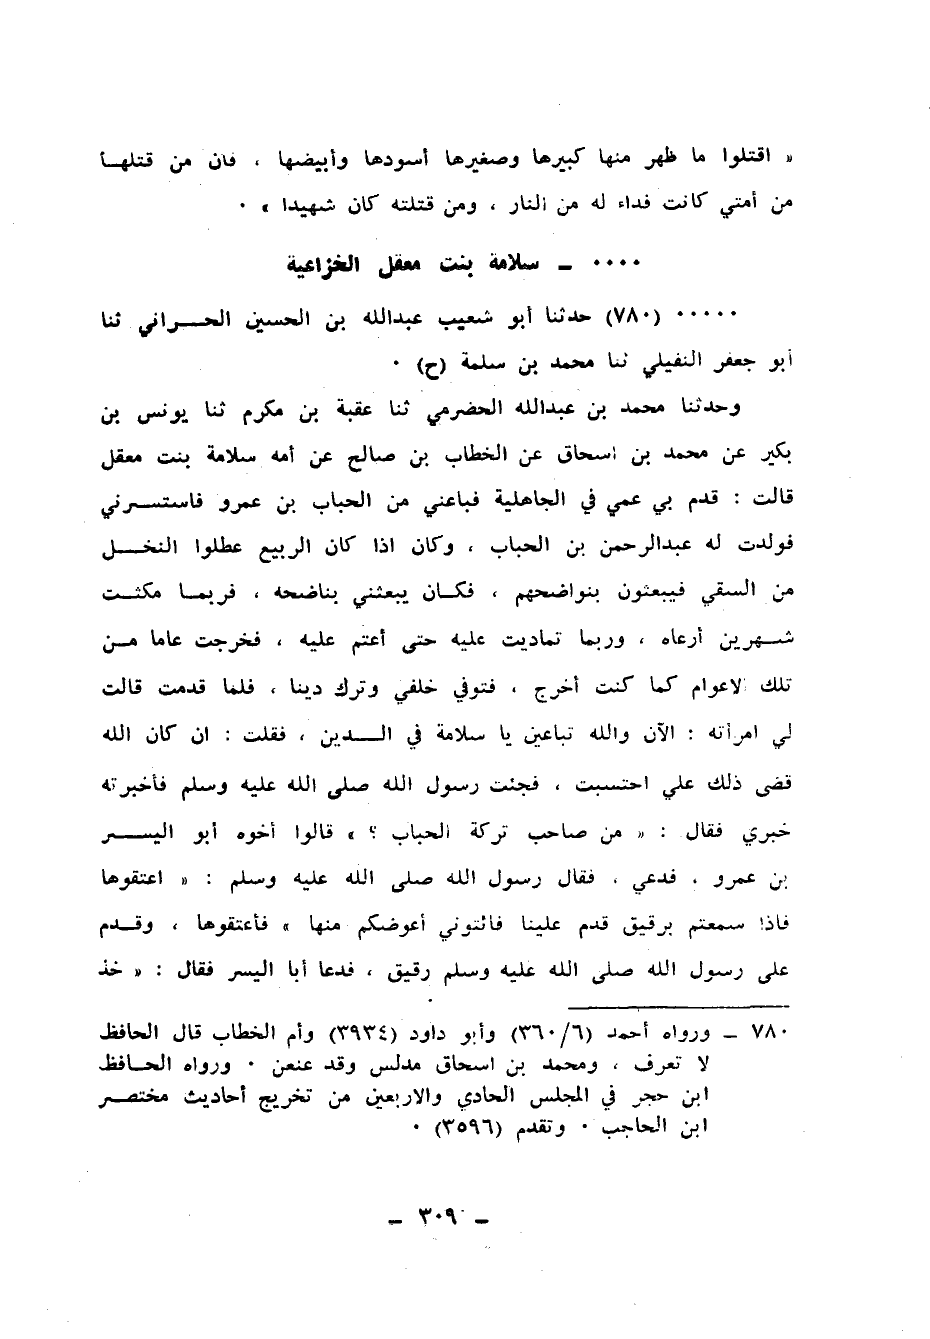 « اقتلوا ما ظهر منها كبيرها وصغيرها أسودها وأبيضها ، فان من قتلها
من أمتي كانت فداء له من النار ، ومن قتلته كان شهيدا » ٠
٠٠٠٠ ـ سلامة بنت معقل الخزاعية
٠٠٠٠٠ (٧٨٠) حدثنا أبو شعيب عبدالله بن الحسين الحراني ثنا
أبو جعفر النفيلي ثنا محمد بن سلمة (ح) ٠
وحدثنا محمد بن عبدالله الحضرمي ثنا عقبة بن مكرم ثنا يونس بن
بكير عن محمد بن اسحاق عن الخطاب بن صالح عن أمه سلامة بنت معقل
قالت : قدم بي عمي في الجاهلية فباعني من الحباب بن عمرو فاستسرني
فولدت له عبدالرحمن بن الحباب ، وكان اذا كان الربيع عطلوا النخل
من السقي فيبعثون بنواضحهم ، فكان يبعثني بناضحه ، فربما مكثت
شهرين أرعاه ، وربما تماديت عليه حتى أعتم عليه ، فخرجت عاما من
تلك الاعوام كما كنت أخرج ، فتوفي خلفي وترك دينا ، فلما قدمت قالت
لي امرأته : الآن والله تباعين يا سلامة في الدين ، فقلت : ان كان الله
قضى ذلك علي احتسبت ، فجئت رسول الله صلى الله عليه وسلم فأخبرته
خبري فقال : « من صاحب تركة الحباب ؟ » قالوا أخوه أبو اليسر
بن عمرو ، فدعي ، فقال رسول الله صلى الله عليه وسلم : « اعتقوها
فاذا سمعتم برقيق قدم علينا فائتوني أعوضكم منها » فأعتقوها ، وقدم
على رسول الله صلى الله عليه وسلم رقيق ، فدعا أبا اليسر فقال : « خذ
٧٨٠ ـ ورواه أحمد (٣٦٠/٦) وأبو داود (٣٩٣٤) وأم الخطاب قال الحافظ
لا تعرف ، ومحمد بن اسحاق مدلس وقد عنعن ٠ ورواه الحافظ
ابن حجر في المجلس الحادي والاربعين من تخريج أحاديث مختصر
ابن الحاجب ٠ وتقدم (٣٥٩٦) ٠
ـ ٣٠٩ ـ